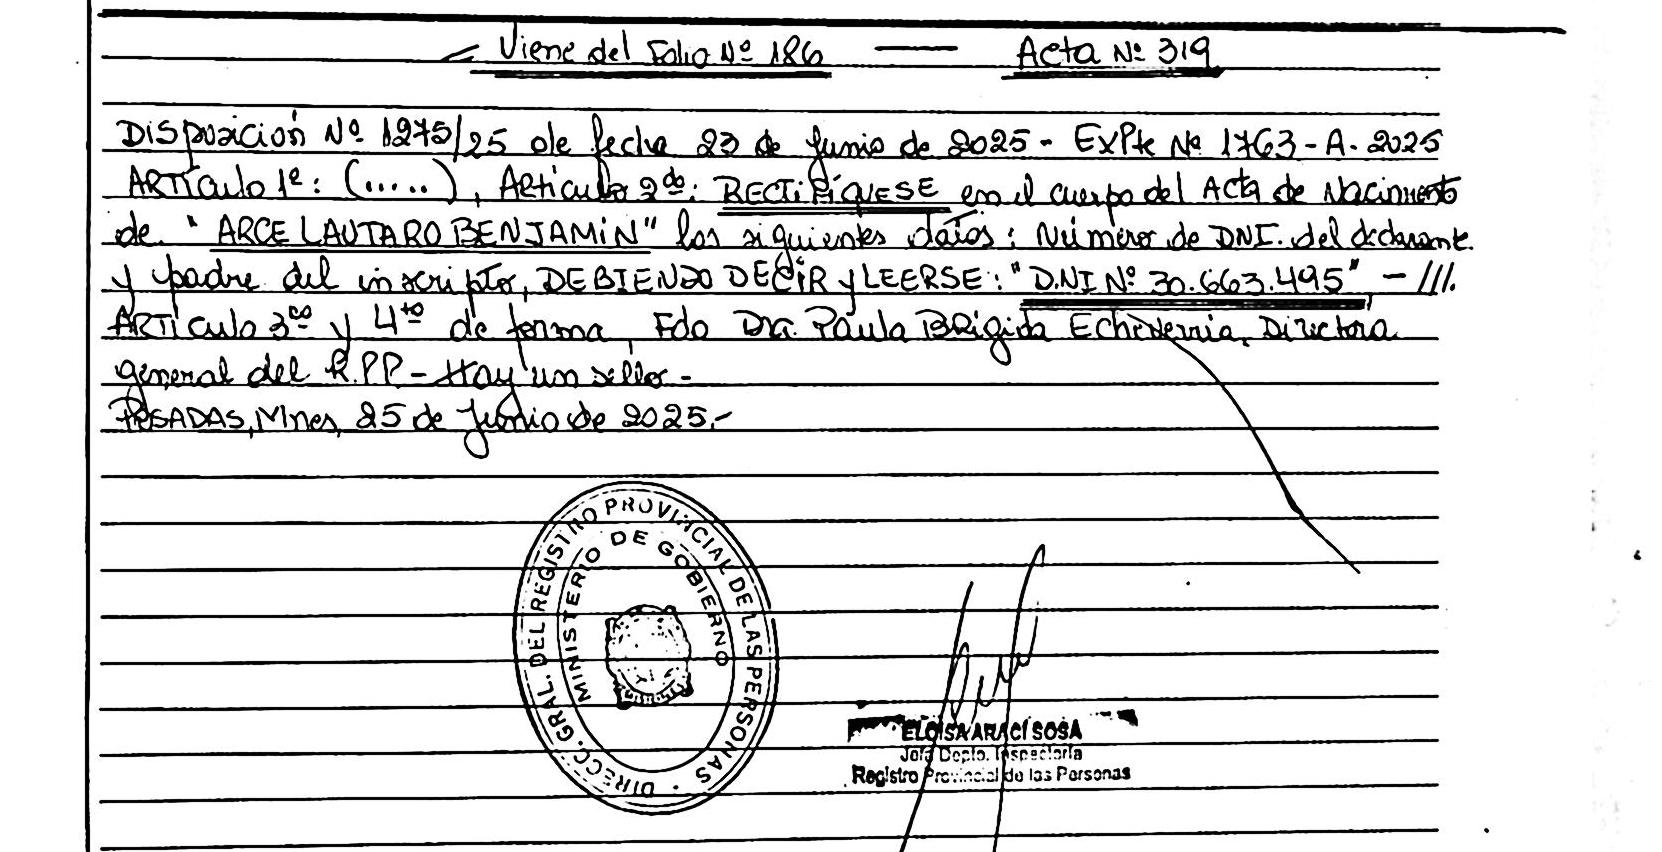 Viene del Folio Nº 186 — Acta Nº 319
Disposicion Nº 1275/25 de fecha 23 de Junio de 2025 - ExPte Nº 1763-A-2025
ARTículo 1º: (.....), Articulo 2do: RECTIFÍQUESE en el cuerpo del Acta de Nacimiento
de "ARCE LAUTARO BENJAMIN" los siguientes datos: Número de DNI. del declarante
y padre del inscripto, DEBIENDO DECIR y LEERSE: "D.NI Nº 30.663.495" - ///.
ARTículo 3ro y 4to de forma, Fdo Dra. Paula BRígida Echeverria, Directora
general del R.P.P - Hay un sello -
POSADAS, Mnes, 25 de Junio de 2025.-
DIRECC. GRAL. DEL REGISTRO PROVINCIAL DE LAS PERSONAS
MINISTERIO DE GOBIERNO
ELOISA ARACÍ SOSA
Jefa Depto. Inspectoría
Registro Provincial de las Personas